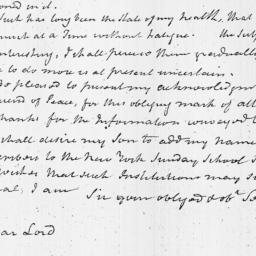 in it.
Such has long been the state of my health, that
much at a Time without fatigue. The subj
interesting, I shall peruse them gradually
to do more is at present uncertain.
so pleased to present my acknowledgm
friend of Peace, for this obliging mark of att
thanks for the Information conveyed b
shall desire my Son to add my name
members to the New York Sunday School S
wishes that such Institutions may
I am Sir your obliged & obt. Se
ar Lord